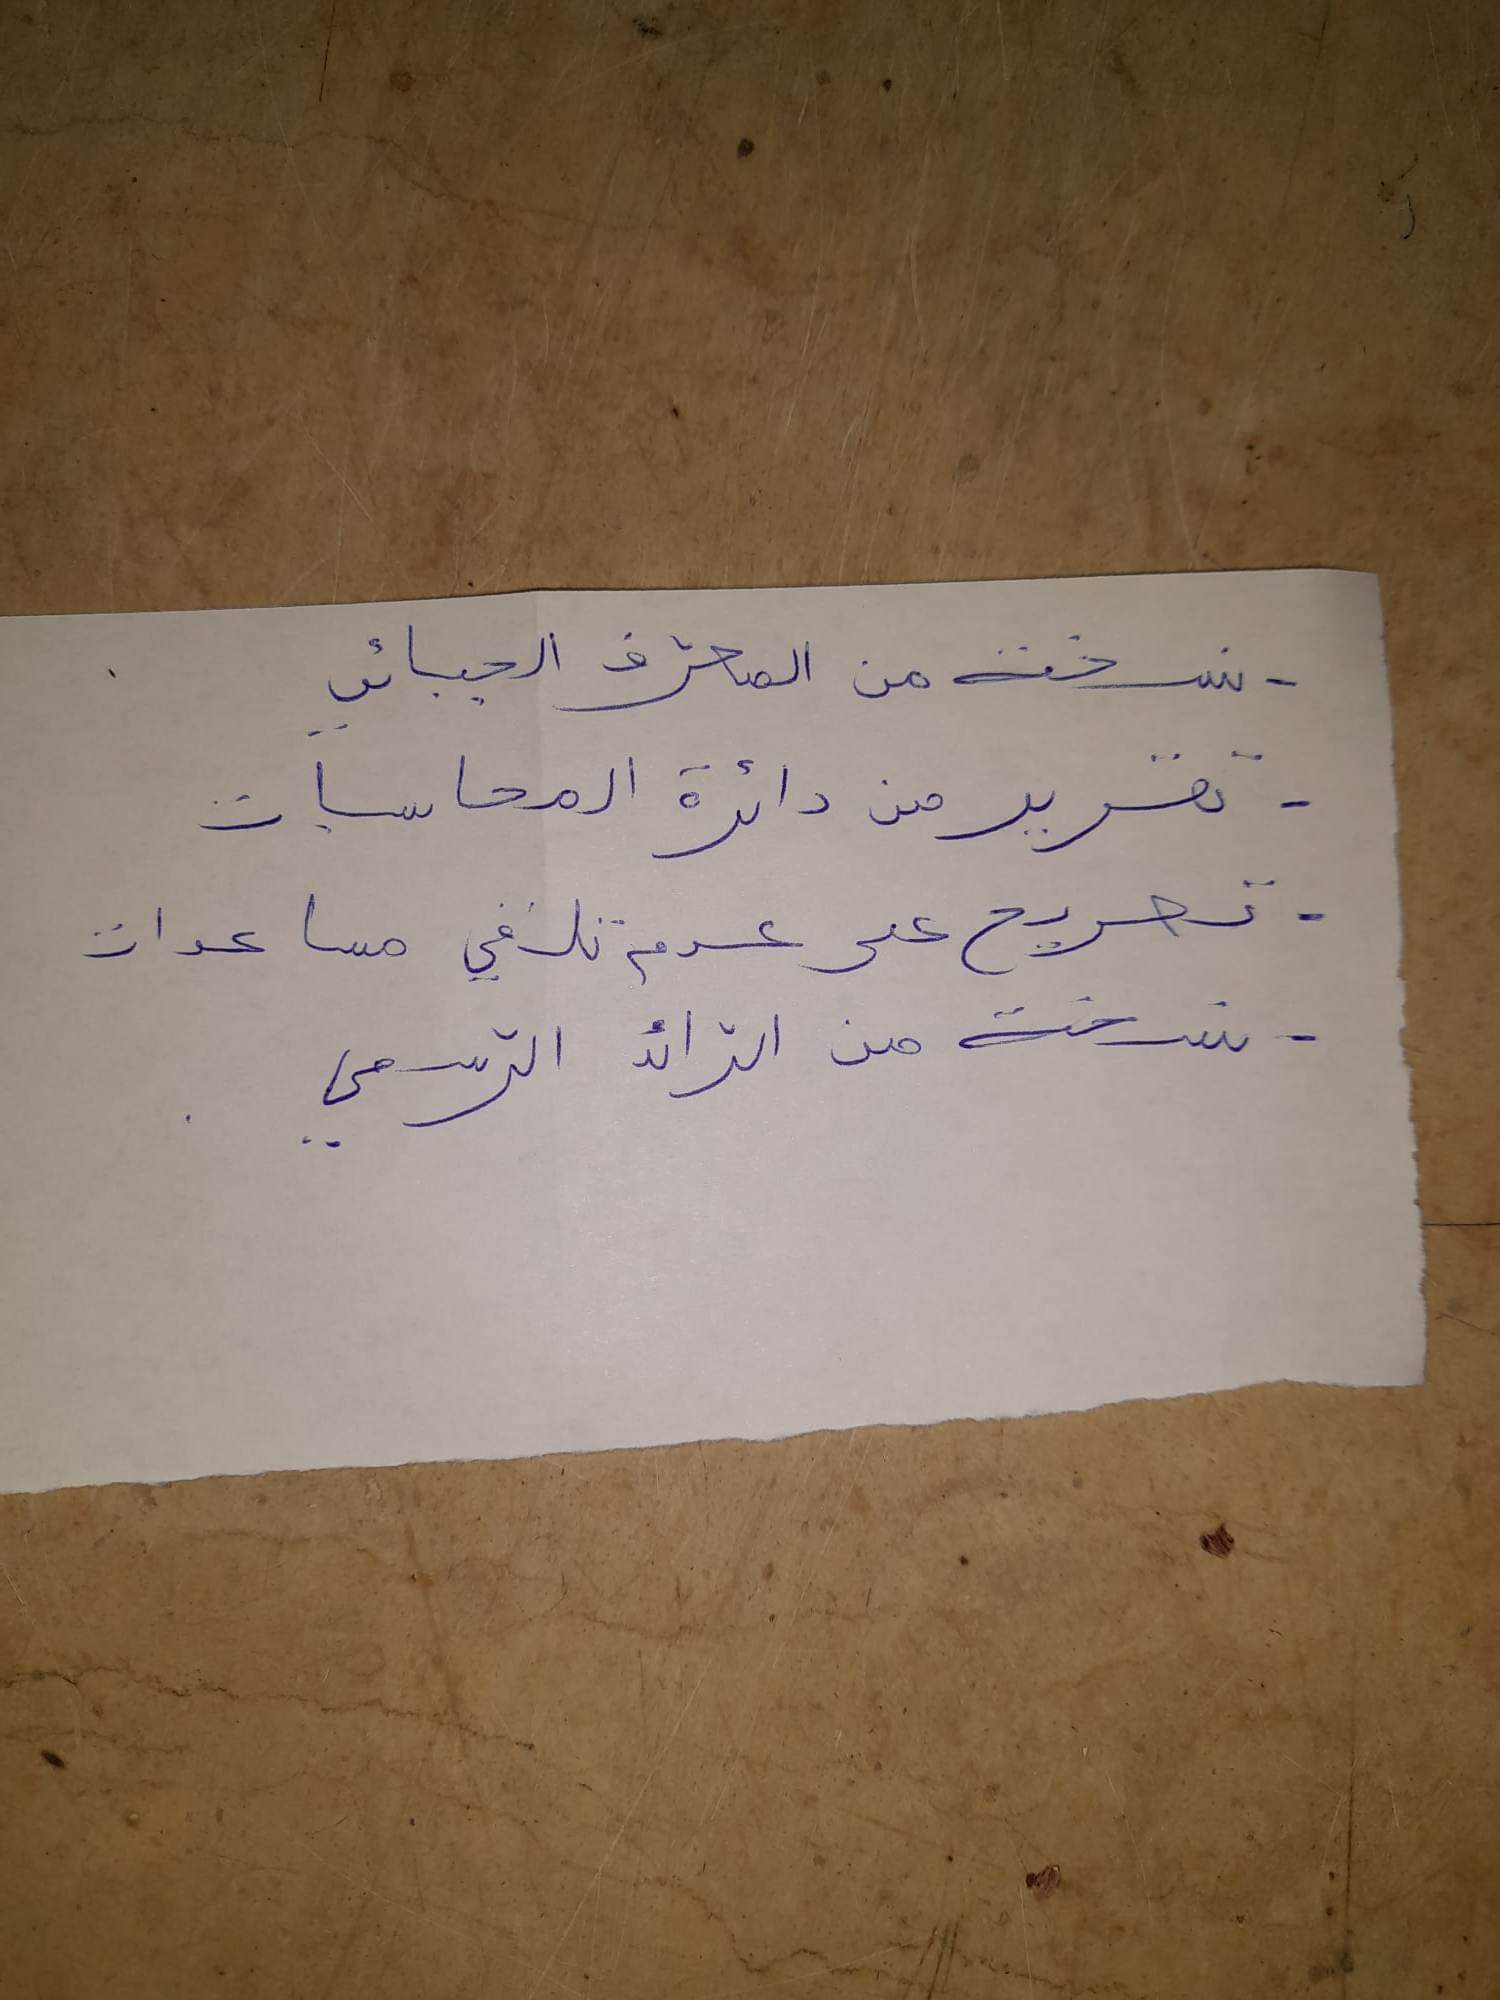 - نسخة من المعرّف الجبائي
- تقرير من دائرة المحاسبات
- تصريح على عدم تلقي مساعدات
- نسخة من الرّائد الرّسمي